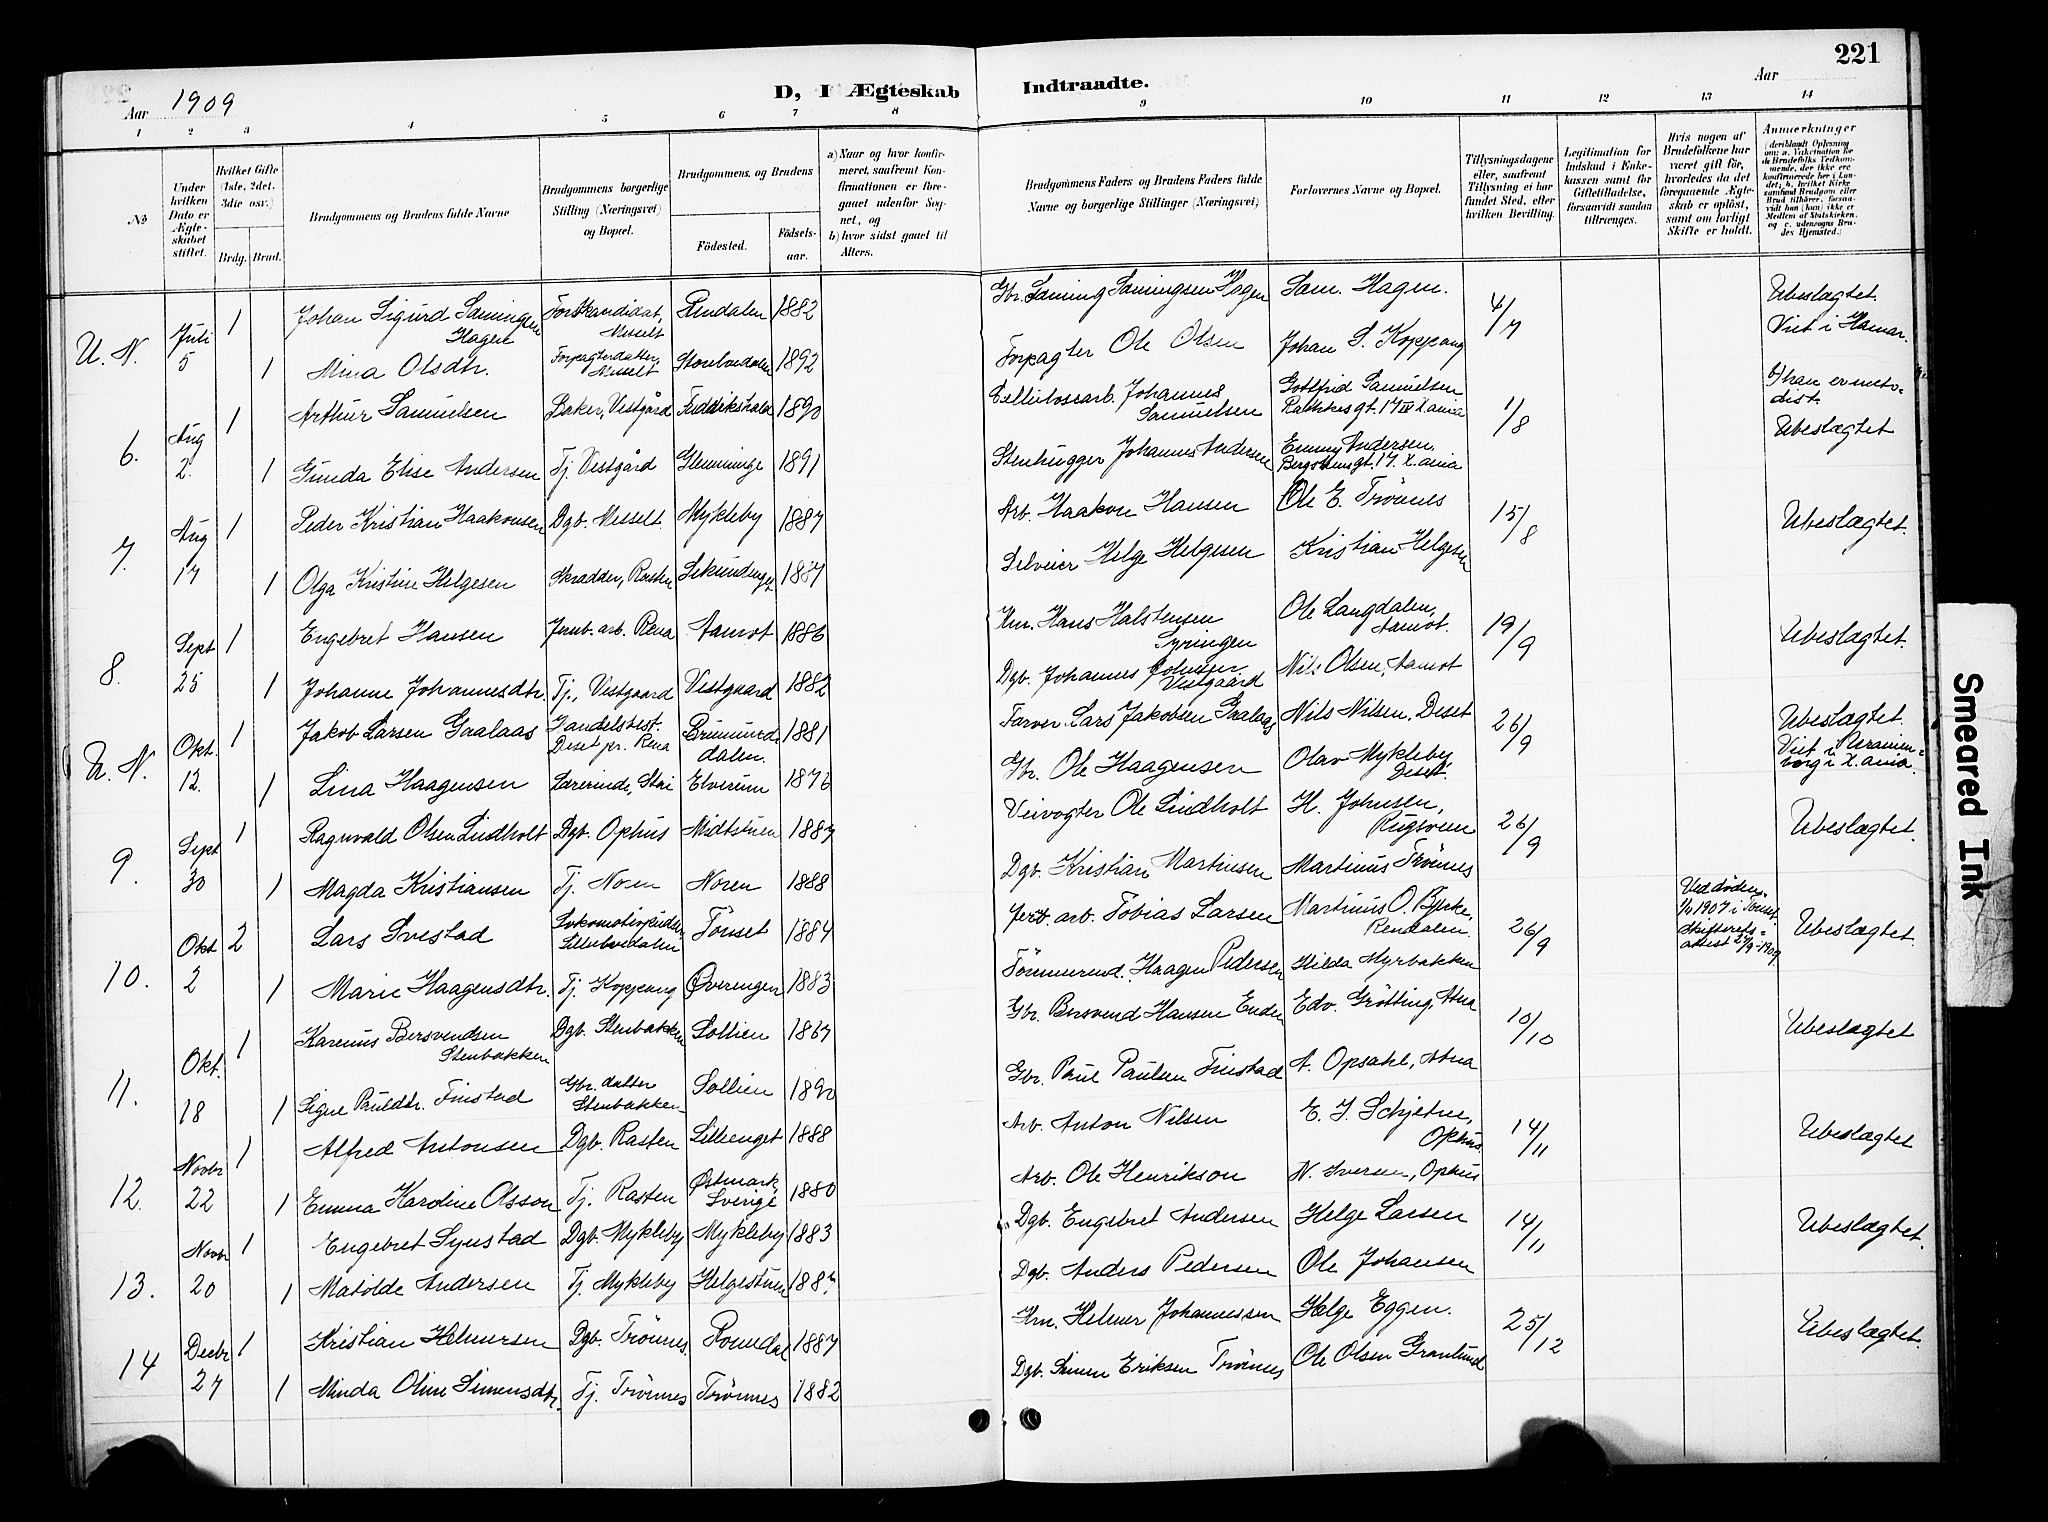 221
Aar 1909
D, I Ægteskab Indtraadte.
Aar
1 2 3 4 5 6 7 8 9 10 11 12 13 14
No
Under hvilken Dato er Ægteskabet stiftet.
Hvilket Gifte (1ste, 2det, 3die osv.)
Brdg. Brud.
Brudgommens og Brudens fulde Navne
Brudgommens borgerlige Stilling (Næringsvei) og Bopæl.
Brudgommens og Brudens
Födested.
Födselsaar.
a) Naar og hvor konfirmeret, saafremt Konfirmationen er foregaaet udenfor Sognet, og
b) hvor sidst gaaet til Alters.
Brudgommens Faders og Brudens Faders fulde Navne og borgerlige Stillinger (Næringsvei)
Forlovernes Navne og Bopæl.
Tillysningsdagene eller, saafremt Tillysning ei har fundet Sted, efter hvilken Bevilling.
Legitimation for Indskud i Enkekassen samt for Giftetilladelse, forsaavidt saadan tiltrænges.
Hvis nogen af Brudefolkene har været gift för, hvorledes da det foregaaende Ægteskab er oplöst, samt om lovligt Skifte er holdt.
Anmærkninger (deriblandt Oplysning om: a. Vakcination for de Brudefolks Vedkommende, der ikke ere konfirmerede her i Landet; b. hvilket Kirkesamfund Brudgom eller Brud tilhörer, forsaavidt han (hun) ikke er Medlem af Statskirken, og c. udensogns Brudes Hjemsted.)
U. N. Juli 5 1 Johan Sigurd Samingsen Hagen Forstkandidat, Messelt Rendalen 1882 Gbr. Saming Samingsen Hagen Sam. Hagen. 4/7 Ubeslægtet. Viet i Hamar.
1 Mina Olsdtr. Forpagterdatter, Messelt Storelvedalen 1892 Forpagter Ole Olsen Johan S. Koppang
6. Aug 2. 1 Arthur Samuelsen Baker, Vestgård Fredrikshald 1890 Cellulosearb. Johannes Samuelsen Gottfrid Samuelsen 17 IV X.ania 1/8 b) han er metodist. Ubeslægtet
1 Gunda Elise Andersen Tj. Vestgård Glemminge 1891 Stenhugger Johannes Andersen Emmy Andersen. 17. X.ania
7. Aug 17 1 Peder Kristian Haakonsen Dgb. Messelt. Mykleby 1887 Arb. Haakon Hansen Ole E. Trönnes 15/8 Ubeslægtet.
1 Olga Kristine Helgesen Skrædder, Rasten 1887 Selveier Helge Helgesen Kristian Helgesen
8. Sept 25 1 Engebret Hansen Jernb. arb. Rena Aamot 1886 Hm. Hans Halstensen Syringen Ole Langdalen, Aamot. 19/9 Ubeslægtet.
1 Johanne Johannesdtr. Tj., Vestgaard Vestgaard 1882 Dgb. Johannes Johnsen Vestgaard Nils Olsen, Aamot
U. N. Okt. 12. 1 Jakob Larsen Gaalaas Handelsbest. Deset pr. Rena Brumunddalen. 1881 Farver Lars Jakobsen Gaalaas Nils Nilsen, Deset 26/9 Ubeslægtet. Viet i Uranienborg i X.ania.
1 Lina Haagensen Lærerinde, Stai Elverum 1876 Gbr. Ole Haagensen Olav Mykleby Deset.
9. Sept 30 1 Ragnvald Olsen Lindholt Dgb. Ophus Midtstuen 1887 Veivogter Ole Lindholt H. Johnsen, 26/9 Ubeslægtet.
1 Magda Kristiansen Tj. Noren Noren 1888 Dgb. Kristian Martinsen Martinus Trönnes
10. Okt 2 2 Lars Svestad Lillelvedalen Tönset 1884 Jernb. arb. Tobias Larsen Martinus O. Rendalen. 26/9 Ved döden 1907 i Tönset. Skifterets-attest 27/9-1909 Ubeslægtet.
1 Marie Haagensdtr. Tj. Koppang Överengen 1883 Tömmermd. Haagen Pedersen Hilda Myrbakken
11. Okt. 18 1 Karenus Bersvendsen Stenbakken Dgb. Stenbakken Sollien 1867 Gbr. Bersvend Hansen Enden Edv. Grötting, Atna 10/10 Ubeslægtet
1 Signe Pauldtr. Finstad Gbr. datter Stenbakken Sollien 1890 Gbr. Paul Paulsen Finstad A. Opsahl, Atna
12. Novbr 22 1 Alfred Antonsen Dgb. Rasten Lillienget 1888 Arb. Anton Nilsen E. J. Schjetne, Ophus. 14/11 Ubeslægtet
1 Emma Karoline Olsson Tj. Rasten Østmark, Sverige 1880 Arb. Ole Henrikson N. Iversen, Ophus
13. Novbr 20 1 Engebret Synstad Dgb. Mykleby Mykleby 1883 Dgb. Engebret Andersen Helge Larsen 14/11 Ubeslægtet.
1 Matilde Andersen Tj. Mykleby Helgestuen 1887 Dgb. Anders Pedersen Ole Johansen
14 Decbr 27 1 Kristian Helmersen Dgb. Trönnes. Romedal 1887 Hm. Helmer Johannessen Helge Eggen. 25/12 Ubeslægtet.
1 Minda Oline Simensdtr. Tj. Trönnes Trönnes 1882 Dgb. Simen Eriksen Trönnes Ole Olsen Granlund
Smeared Ink